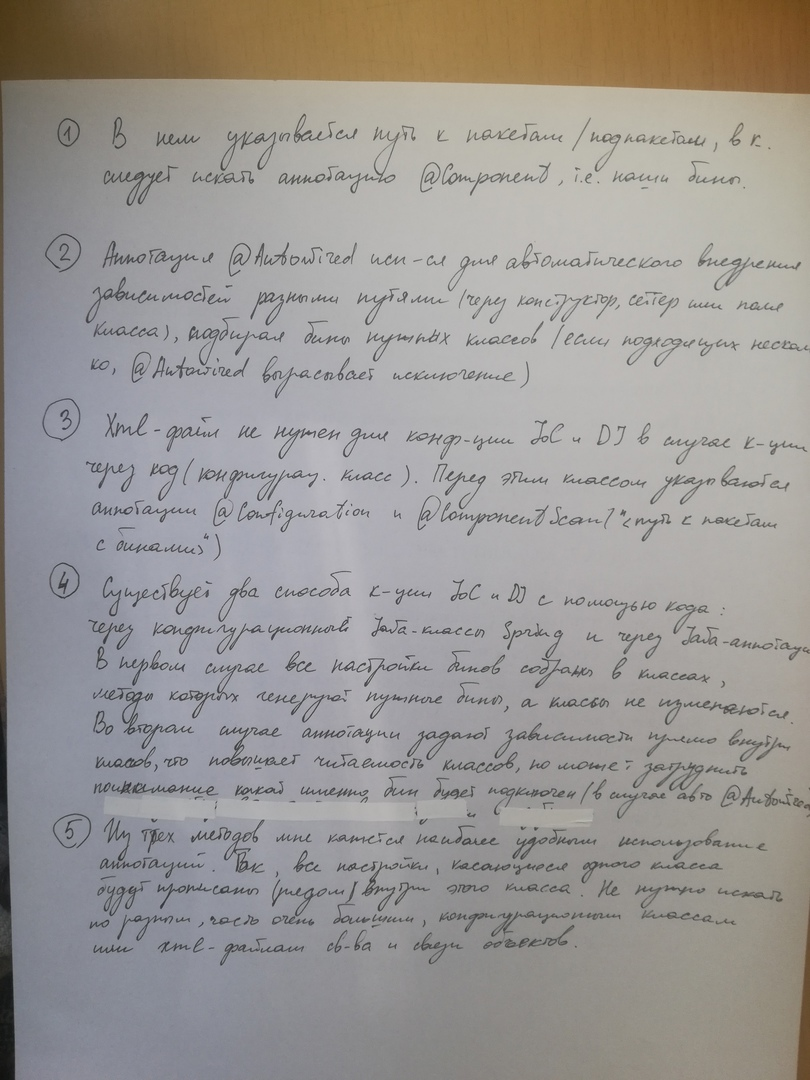 ① В нем указывается путь к пакетам / подпакетам, в к.
следует искать аннотацию @Component, т.е. наши бины.
② Аннотация @Autowired исп-ся для автоматического внедрения
зависимостей разными путями (через конструктор, сеттер или поля
класса), подбирая бины нужных классов (если подходящих несколь
ко, @Autowired выбрасывает исключение)
③ Xml-файл не нужен для конф-ции IoC и DI в случае к-ции
через код (конфигурац. класс). Перед этим классом указываются
аннотации @Configuration и @ComponentScan("<путь к пакетам
с бинами>")
④ Существует два способа к-ции IoC и DI с помощью кода:
через конфигурационный Java-классы Spring и через Java-аннотации
В первом случае все настройки бинов собраны в классах,
методы которых генерируют нужные бины, а классы не изменяются.
Во втором случае аннотации задают зависимости прямо внутри
классов, что повышает читаемость классов, но может затруднить
понимание какой именно бин будет подключен (в случае авто @Autowired)
⑤ Из трех методов мне кажется наиболее удобными использование
аннотаций. Так, все настройки, касающиеся одного класса
будут прописаны (рядом) внутри этого класса. Не нужно искать
по разным, часто очень большим, конфигурационным классам
или xml-файлам св-ва и связи объектов.